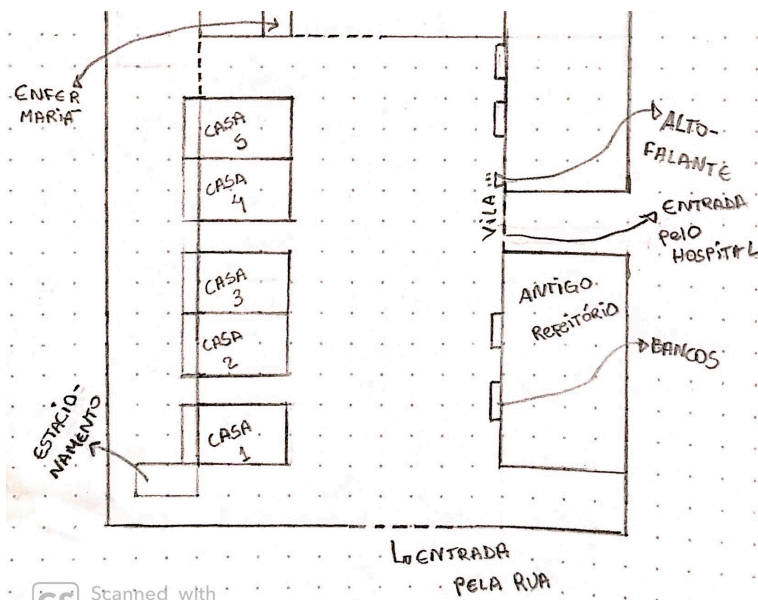 ENFER
MARIA
CASA
5
CASA
4
CASA
3
CASA
2
CASA
1
ESTACIO-
NAMENTO
VILA
ALTO-
FALANTE
ENTRADA
PELO
HOSPITAL
ANTIGO
REFEITÓRIO
BANCOS
ENTRADA
PELA RUA
CS Scanned with